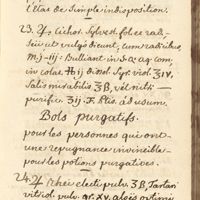 l'Etat de simple indisposition.
23. ℞ Cichor. Sylvest. fol. et rad.,
Seu, ut vulgo dicunt, cum radicibus,
M. j-iij. Bulliant in S. q. aq. com.
in colat. ℔ij dissol. Syr. viol. ℥iv,
Salis mirabilis ℥ß, vel nitri
purific. ʒij. F. Ptis. ad usum.
Bols purgatifs.
pour les personnes qui ont
une repugnance invincible
pour les potions purgatives.
24. ℞ Rhei electi pulv. ʒß, Tartari
vitriol. pulv. gr. xv, aloes optimi